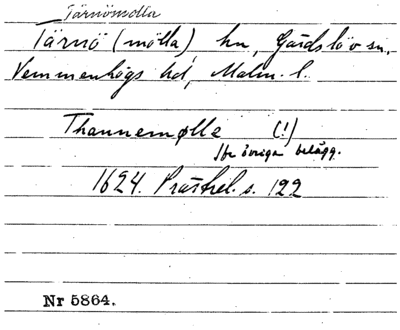 Tärnömölla
Tärnö (mölla) hn, Gärdslöv sn,
Vemmenhögs hd, Malm. l.
Thannemølle (!)
Jfr övriga belägg.
1624. Prästrel. s. 122
Nr 5864.